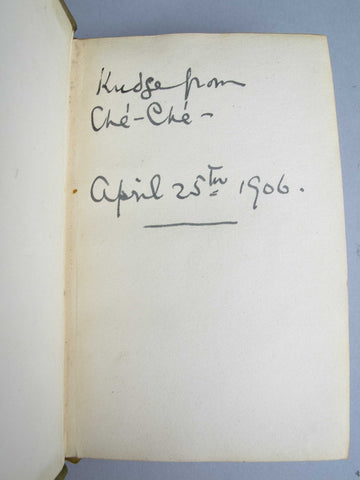 Kudge from
Ché-Ché-
April 25th 1906.